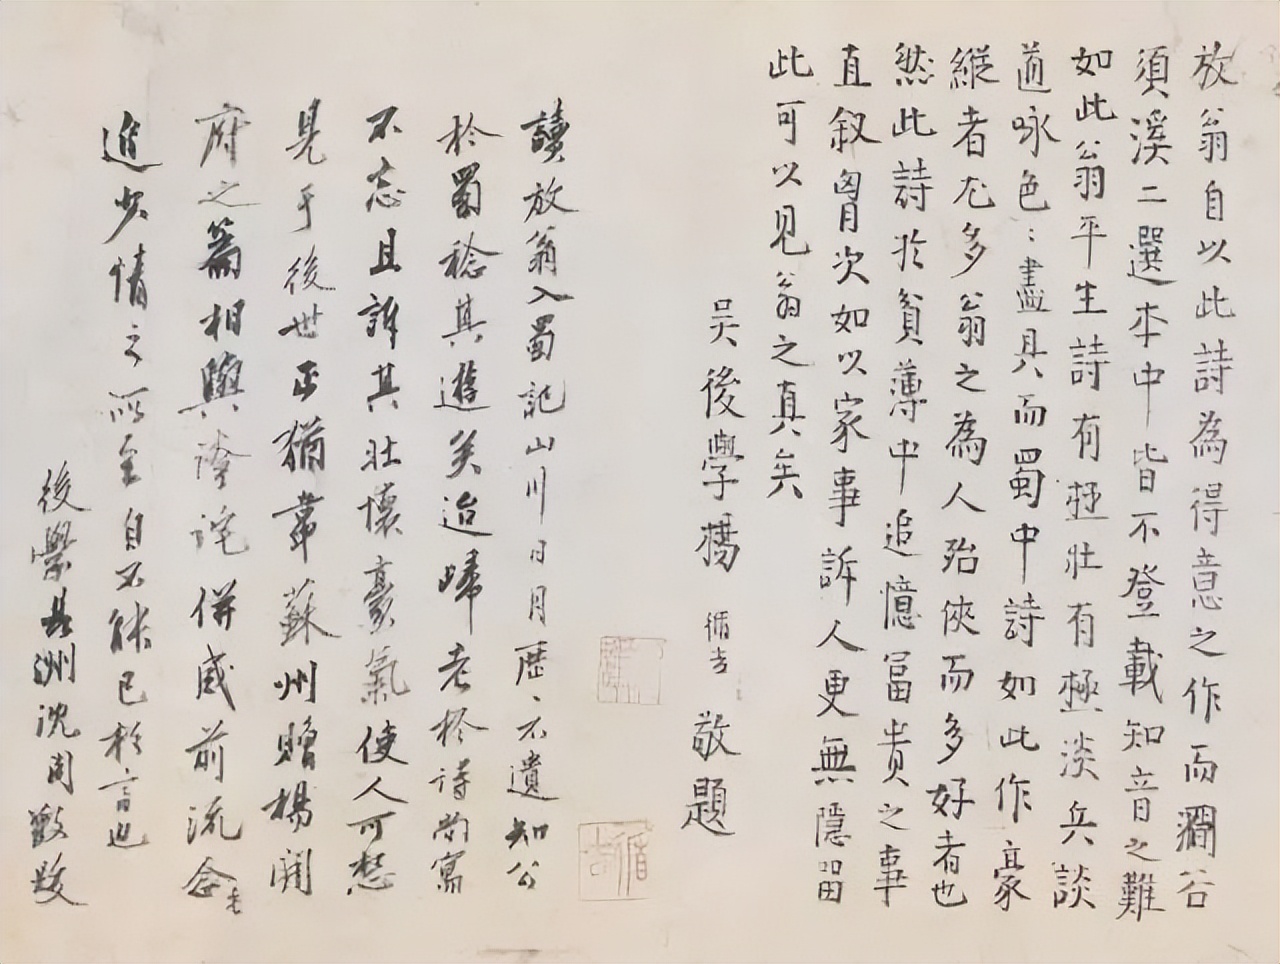 放翁自以此詩為得意之作而澗谷
須溪二選本中皆不登載知音之難
如此翁平生詩有極壯有極淡兵談
道咏色〻盡具而蜀中詩如此作豪
縱者尤多翁之為人殆俠而多好者也
然此詩於貧薄中追憶富貴之事
直叙胷次如以家事訴人更無隱留
此可以見翁之真矣
吴後學楊循吉敬題
循吉
讀放翁入蜀記山川日月歷〻不遺知公
於蜀稔其遊矣迨歸老於詩尚寫
不忘且訴其壯懷豪氣使人可想
見于後世正猶韋蘇州贈楊開
府之篇相與誇詫併感前流念老
進少情之所至自不能已於言也
後學長洲沈周敬跋